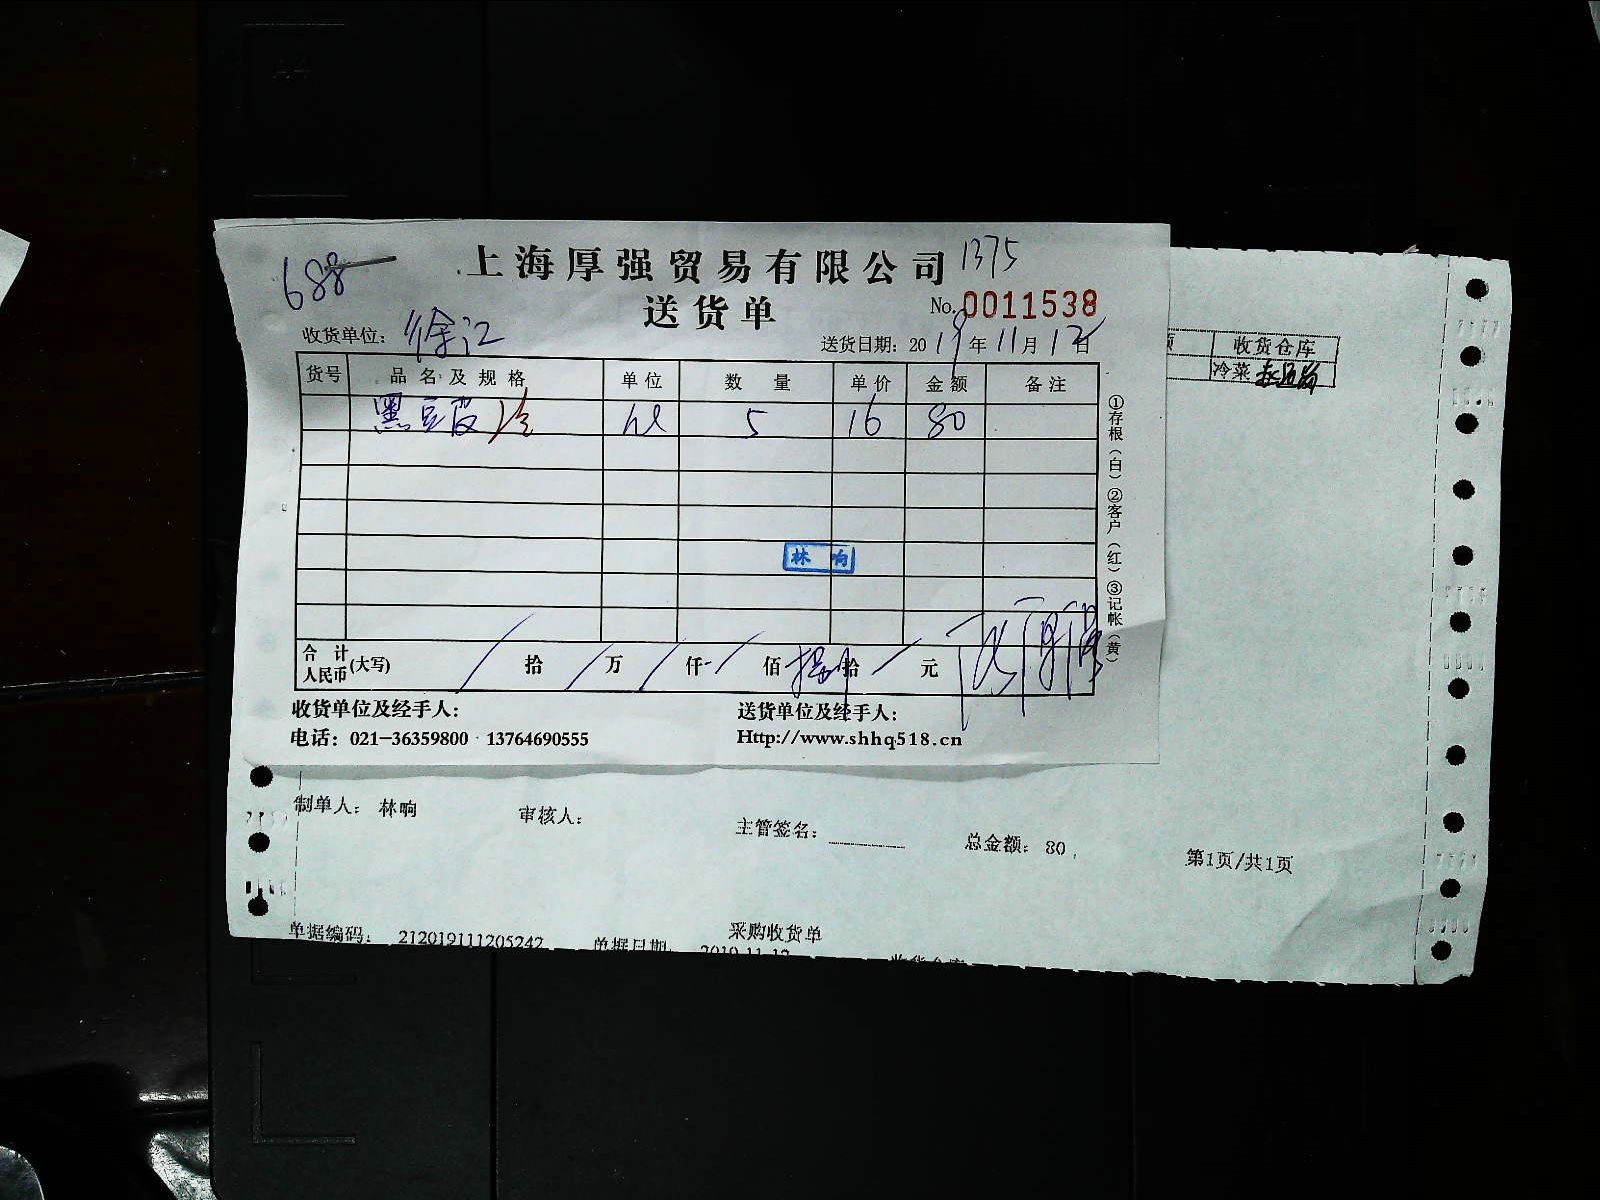 688
上海厚强贸易有限公司 1375
送货单 No. 0011538
收货单位: 徐汇 送货日期: 2019年11月12日
货号 品名及规格 单位 数量 单价 金额 备注
黑豆皮 冷 5 16 80
林响
合计人民币(大写) 拾 万 仟 佰 捌拾 元
收货单位及经手人: 送货单位及经手人:
电话: 021-36359800 13764690555 Http://www.shhq518.cn
①存根(白)②客户(红)③记帐(黄)
收货仓库
冷菜
制单人: 林响 审核人: 主管签名: 总金额: 80 第1页/共1页
采购收货单
单据编码: 212019111205242 单据日期: 2019-11-12 收货仓库